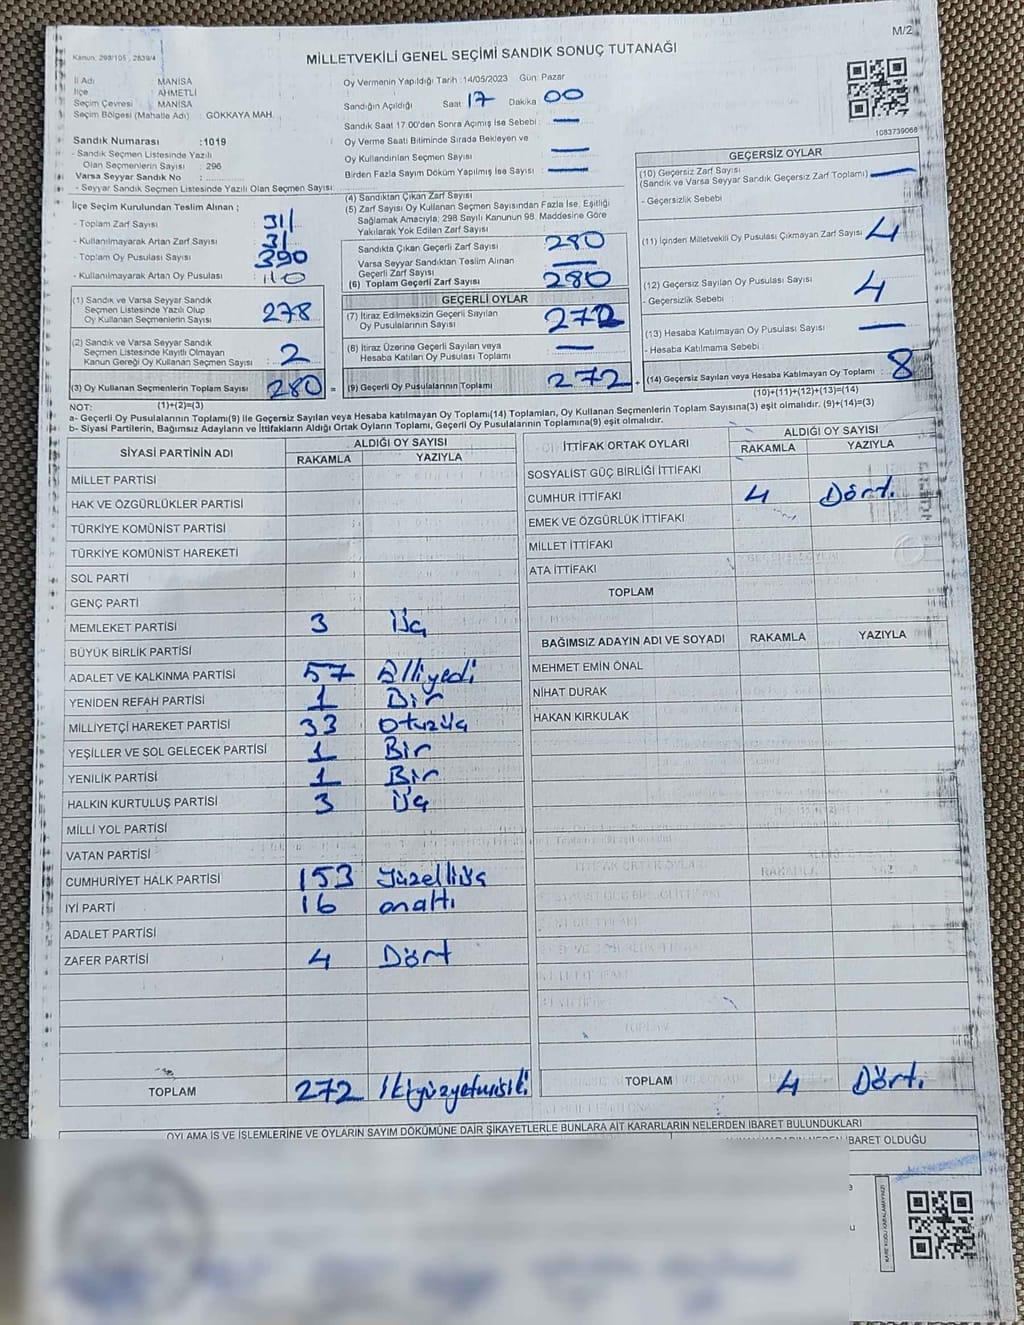 M/2
Kanun, 298/105 , 2839/4
MİLLETVEKİLİ GENEL SEÇİMİ SANDIK SONUÇ TUTANAĞI
İl Adı MANİSA
İlçe AHMETLİ
Seçim Çevresi MANİSA
Seçim Bölgesi (Mahalle Adı) GÖKKAYA MAH.
Sandık Numarası :1019
- Sandık Seçmen Listesinde Yazılı
Olan Seçmenlerin Sayısı : 296
Varsa Seyyar Sandık No :
- Seyyar Sandık Seçmen Listesinde Yazılı Olan Seçmen Sayısı:
Oy Vermenin Yapıldığı Tarih :14/05/2023 Gün: Pazar
Sandığın Açıldığı Saat 17 Dakika 00
Sandık Saat 17:00'den Sonra Açımış İse Sebebi : —
Oy Verme Saati Bitiminde Sırada Bekleyen ve
Oy Kullandırılan Seçmen Sayısı —
Birden Fazla Sayım Döküm Yapılmış İse Sayısı : —
1083739068
İlçe Seçim Kurulundan Teslim Alınan ;
- Toplam Zarf Sayısı 311
- Kullanılmayarak Artan Zarf Sayısı 31
- Toplam Oy Pusulası Sayısı 390
- Kullanılmayarak Artan Oy Pusulası : 110
(1) Sandık ve Varsa Seyyar Sandık
Seçmen Listesinde Yazılı Olup
Oy Kullanan Seçmenlerin Sayısı 278
(2) Sandık ve Varsa Seyyar Sandık
Seçmen Listesinde Kayıtlı Olmayan
Kanun Gereği Oy Kullanan Seçmen Sayısı : 2
(3) Oy Kullanan Seçmenlerin Toplam Sayısı 280 =
(1)+(2)=(3)
(4) Sandıktan Çıkan Zarf Sayısı
(5) Zarf Sayısı Oy Kullanan Seçmen Sayısından Fazla İse, Eşitliği
Sağlamak Amacıyla, 298 Sayılı Kanunun 98. Maddesine Göre
Yakılarak Yok Edilen Zarf Sayısı
Sandıkta Çıkan Geçerli Zarf Sayısı 280
Varsa Seyyar Sandıktan Teslim Alınan
Geçerli Zarf Sayısı —
(6) Toplam Geçerli Zarf Sayısı 280
GEÇERLİ OYLAR
(7) İtiraz Edilmeksizin Geçerli Sayılan
Oy Pusulalarının Sayısı 272
(8) İtiraz Üzerine Geçerli Sayılan veya
Hesaba Katılan Oy Pusulası Toplamı —
(9) Geçerli Oy Pusulalarının Toplamı 272 +
GEÇERSİZ OYLAR
(10) Geçersiz Zarf Sayısı
(Sandık ve Varsa Seyyar Sandık Geçersiz Zarf Toplamı) —
- Geçersizlik Sebebi
(11) İçinden Milletvekili Oy Pusulası Çıkmayan Zarf Sayısı 4
(12) Geçersiz Sayılan Oy Pusulası Sayısı 4
- Geçersizlik Sebebi :
(13) Hesaba Katılmayan Oy Pusulası Sayısı —
- Hesaba Katılmama Sebebi :
(14) Geçersiz Sayılan veya Hesaba Katılmayan Oy Toplamı : 8
(10)+(11)+(12)+(13)=(14)
NOT:
a- Geçerli Oy Pusulalarının Toplamı(9) ile Geçersiz Sayılan veya Hesaba katılmayan Oy Toplamı(14) Toplamları, Oy Kullanan Seçmenlerin Toplam Sayısına(3) eşit olmalıdır. (9)+(14)=(3)
b- Siyasi Partilerin, Bağımsız Adayların ve İttifakların Aldığı Ortak Oyların Toplamı, Geçerli Oy Pusulalarının Toplamına(9) eşit olmalıdır.
SİYASİ PARTİNİN ADI
ALDIĞI OY SAYISI
RAKAMLA YAZIYLA
MİLLET PARTİSİ
HAK VE ÖZGÜRLÜKLER PARTİSİ
TÜRKİYE KOMÜNİST PARTİSİ
TÜRKİYE KOMÜNİST HAREKETİ
SOL PARTİ
GENÇ PARTİ
MEMLEKET PARTİSİ 3 Üç
BÜYÜK BİRLİK PARTİSİ
ADALET VE KALKINMA PARTİSİ 57 Elliyedi
YENİDEN REFAH PARTİSİ 1 Bir
MİLLİYETÇİ HAREKET PARTİSİ 33 otuzüç
YEŞİLLER VE SOL GELECEK PARTİSİ 1 Bir
YENİLİK PARTİSİ 1 Bir
HALKIN KURTULUŞ PARTİSİ 3 üç
MİLLİ YOL PARTİSİ
VATAN PARTİSİ
CUMHURİYET HALK PARTİSİ 153 yüzelliüç
İYİ PARTİ 16 onaltı
ADALET PARTİSİ
ZAFER PARTİSİ 4 Dört
TOPLAM 272 İkiyüzyetmişiki
İTTİFAK ORTAK OYLARI
ALDIĞI OY SAYISI
RAKAMLA YAZIYLA
SOSYALİST GÜÇ BİRLİĞİ İTTİFAKI
CUMHUR İTTİFAKI 4 Dört.
EMEK VE ÖZGÜRLÜK İTTİFAKI
MİLLET İTTİFAKI
ATA İTTİFAKI
TOPLAM
BAĞIMSIZ ADAYIN ADI VE SOYADI RAKAMLA YAZIYLA
MEHMET EMİN ÖNAL
NİHAT DURAK
HAKAN KIRKULAK
TOPLAM 4 Dört.
OYLAMA İŞ VE İŞLEMLERİNE VE OYLARIN SAYIM DÖKÜMÜNE DAİR ŞİKAYETLERLE BUNLARA AİT KARARLARIN NELERDEN İBARET BULUNDUKLARI
İBARET OLDUĞU
KARE KODU KARALAMAYINIZ!